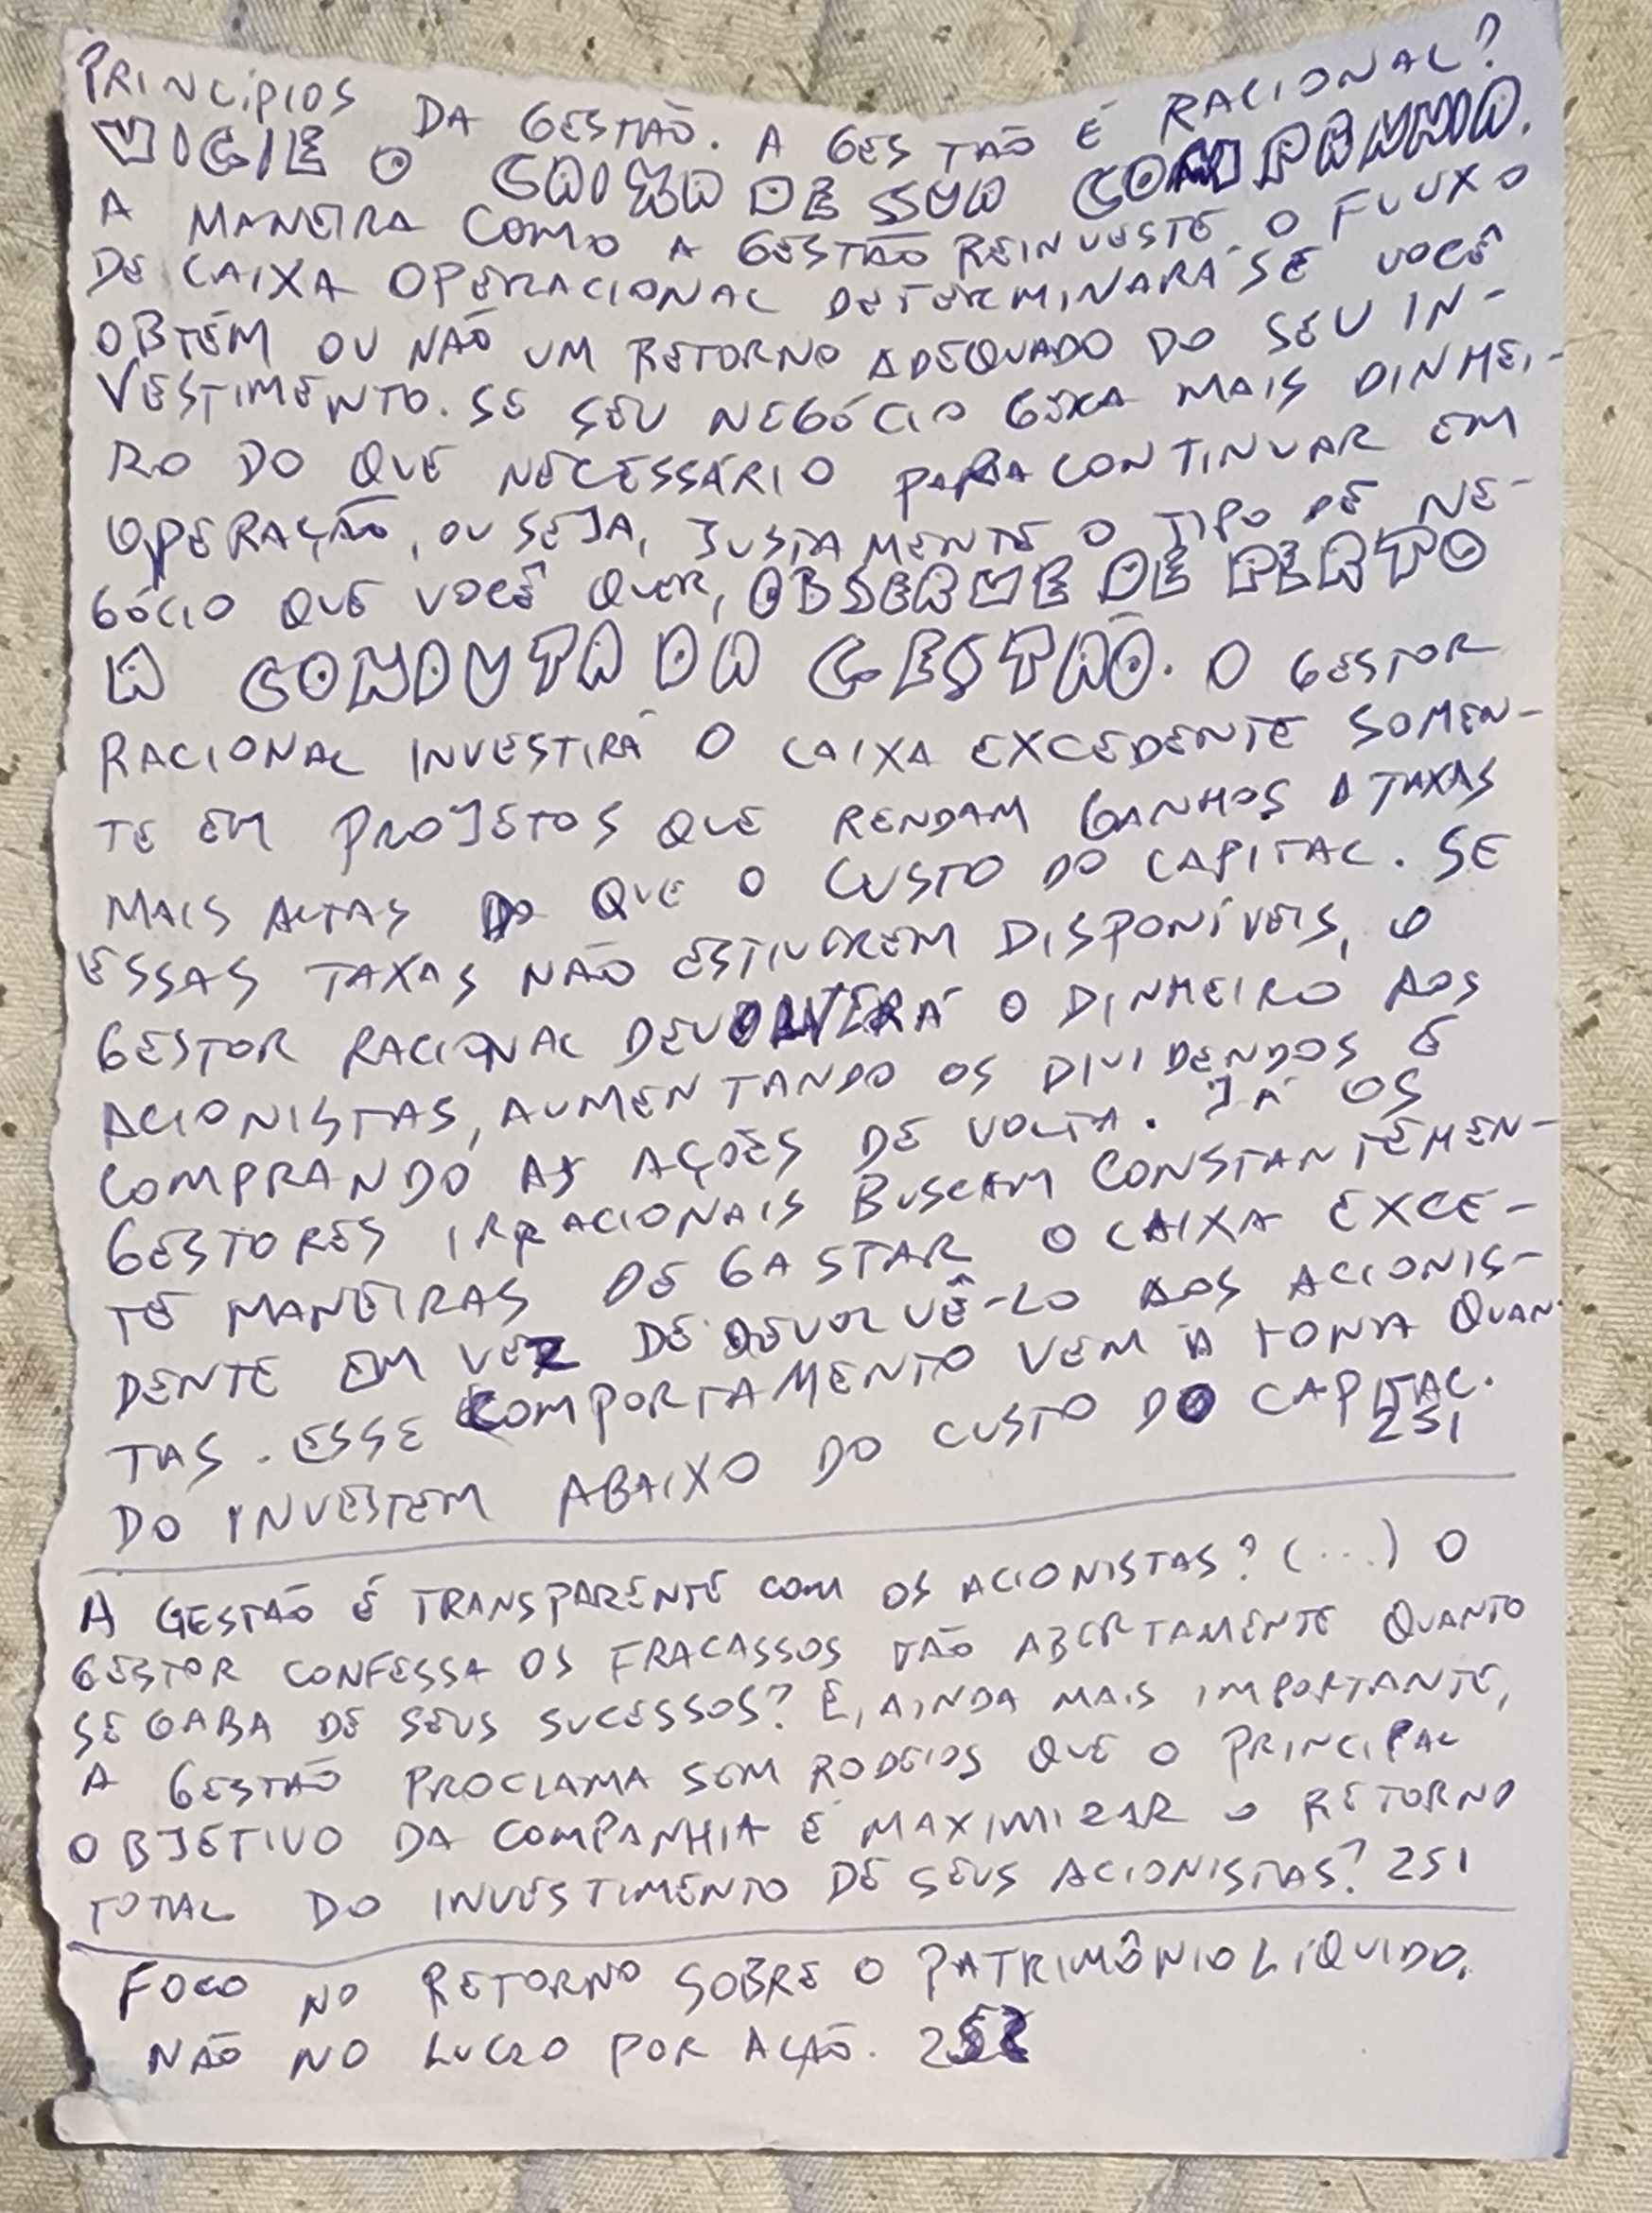 PRINCÍPIOS DA GESTÃO. A GESTÃO É RACIONAL?
VIGIE O CAIXA DE SUA COMPANHIA.
A MANEIRA COMO A GESTÃO REINVESTE O FLUXO
DE CAIXA OPERACIONAL DETERMINARÁ SE VOCÊ
OBTÉM OU NÃO UM RETORNO ADEQUADO DO SEU IN-
VESTIMENTO. SE SEU NEGÓCIO GERA MAIS DINHEI-
RO DO QUE NECESSÁRIO PARA CONTINUAR EM
OPERAÇÃO, OU SEJA, JUSTAMENTE O TIPO DE NE-
GÓCIO QUE VOCÊ QUER, OBSERVE DE PERTO
A CONDUTA DA GESTÃO. O GESTOR
RACIONAL INVESTIRÁ O CAIXA EXCEDENTE SOMEN-
TE EM PROJETOS QUE RENDAM GANHOS A TAXAS
MAIS ALTAS DO QUE O CUSTO DO CAPITAL. SE
ESSAS TAXAS NÃO ESTIVEREM DISPONÍVEIS, O
GESTOR RACIONAL DEVOLVERÁ O DINHEIRO AOS
ACIONISTAS, AUMENTANDO OS DIVIDENDOS E
COMPRANDO AS AÇÕES DE VOLTA. JÁ OS
GESTORES IRRACIONAIS BUSCAM CONSTANTEMEN-
TE MANEIRAS DE GASTAR O CAIXA EXCE-
DENTE EM VEZ DE DEVOLVÊ-LO AOS ACIONIS-
TAS. ESSE COMPORTAMENTO VEM À TONA QUAN-
DO INVESTEM ABAIXO DO CUSTO DO CAPITAL.
251
A GESTÃO É TRANSPARENTE COM OS ACIONISTAS? (...) O
GESTOR CONFESSA OS FRACASSOS TÃO ABERTAMENTE QUANTO
SE GABA DE SEUS SUCESSOS? E, AINDA MAIS IMPORTANTE,
A GESTÃO PROCLAMA SEM RODEIOS QUE O PRINCIPAL
OBJETIVO DA COMPANHIA É MAXIMIZAR O RETORNO
TOTAL DO INVESTIMENTO DE SEUS ACIONISTAS? 251
FOCO NO RETORNO SOBRE O PATRIMÔNIO LÍQUIDO,
NÃO NO LUCRO POR AÇÃO. 252